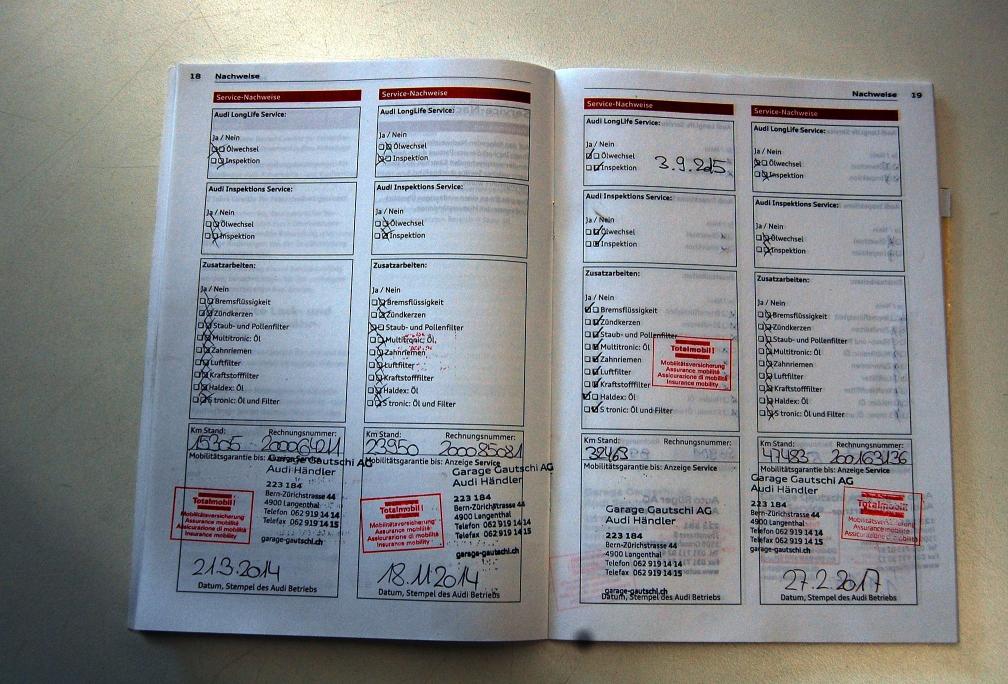 18 Nachweise
Service-Nachweise
Audi LongLife Service:
Ja / Nein
Ölwechsel
Inspektion
Audi Inspektions Service:
Ja / Nein
Ölwechsel
Inspektion
Zusatzarbeiten:
Ja / Nein
Bremsflüssigkeit
Zündkerzen
Staub- und Pollenfilter
Multitronic: Öl
Zahnriemen
Luftfilter
Kraftstofffilter
Haldex: Öl
S tronic: Öl und Filter
Km Stand: Rechnungsnummer:
15305
Mobilitätsgarantie bis: Anzeige Service
Garage Gautschi AG
Audi Händler
223 184
Bern-Zürichstrasse 44
4900 Langenthal
Telefon 062 919 14 14
Telefax 062 919 14 15
garage-gautschi.ch
Totalmobil!
Mobilitätsversicherung
Assurance mobilité
Assicurazione di mobilità
Insurance mobility
21.3.2014
Datum, Stempel des Audi Betriebs
Service-Nachweise
Audi LongLife Service:
Ja / Nein
Ölwechsel
Inspektion
Audi Inspektions Service:
Ja / Nein
Ölwechsel
Inspektion
Zusatzarbeiten:
Ja / Nein
Bremsflüssigkeit
Zündkerzen
Staub- und Pollenfilter
Multitronic: Öl
Zahnriemen
Luftfilter
Kraftstofffilter
Haldex: Öl
S tronic: Öl und Filter
Km Stand: Rechnungsnummer:
23350 200085081
Mobilitätsgarantie bis: Anzeige Service
Garage Gautschi AG
Audi Händler
223 184
Bern-Zürichstrasse 44
4900 Langenthal
Telefon 062 919 14 14
Telefax 062 919 14 15
garage-gautschi.ch
Totalmobil!
Mobilitätsversicherung
Assurance mobilité
Assicurazione di mobilità
Insurance mobility
18.11.2014
Datum, Stempel des Audi Betriebs
Nachweise 19
Service-Nachweise
Audi LongLife Service:
Ja / Nein
Ölwechsel
Inspektion
3.9.2015
Audi Inspektions Service:
Ja / Nein
Ölwechsel
Inspektion
Zusatzarbeiten:
Ja / Nein
Bremsflüssigkeit
Zündkerzen
Staub- und Pollenfilter
Multitronic: Öl
Zahnriemen
Luftfilter
Kraftstofffilter
Haldex: Öl
S tronic: Öl und Filter
Totalmobil!
Mobilitätsversicherung
Assurance mobilité
Assicurazione di mobilità
Insurance mobility
Km Stand: Rechnungsnummer:
32463
Mobilitätsgarantie bis: Anzeige Service
Garage Gautschi AG
Audi Händler
223 184
Bern-Zürichstrasse 44
4900 Langenthal
Telefon 062 919 14 14
Telefax 062 919 14 15
garage-gautschi.ch
Datum, Stempel des Audi Betriebs
Service-Nachweise
Audi LongLife Service:
Ja / Nein
Ölwechsel
Inspektion
Audi Inspektions Service:
Ja / Nein
Ölwechsel
Inspektion
Zusatzarbeiten:
Ja / Nein
Bremsflüssigkeit
Zündkerzen
Staub- und Pollenfilter
Multitronic: Öl
Zahnriemen
Luftfilter
Kraftstofffilter
Haldex: Öl
S tronic: Öl und Filter
Km Stand: Rechnungsnummer:
47483 200163136
Mobilitätsgarantie bis: Anzeige Service
Garage Gautschi AG
Audi Händler
223 184
Bern-Zürichstrasse 44
4900 Langenthal
Telefon 062 919 14 14
Telefax 062 919 14 15
garage-gautschi.ch
Totalmobil!
Assurance mobilité
Assicurazione di mobilità
Insurance mobility
27.2.2017
Datum, Stempel des Audi Betriebs